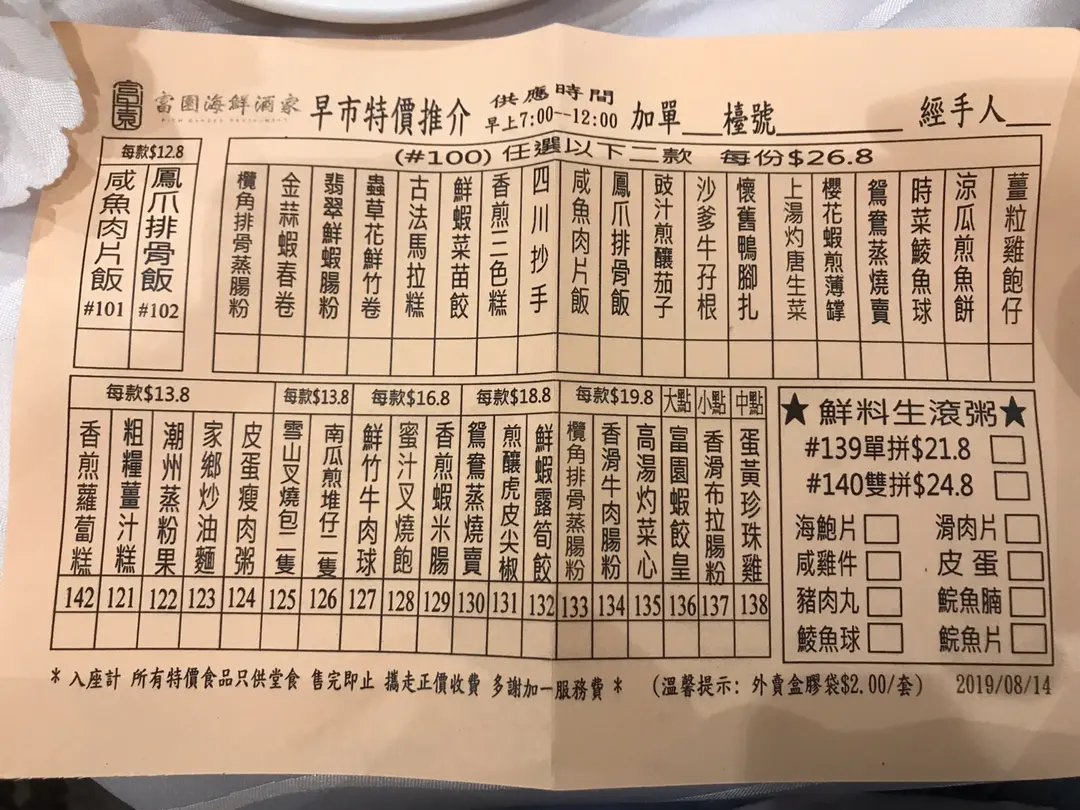 富園
富園海鮮酒家
RICH GARDEN RESTAURANT
早市特價推介
供應時間
早上7:00--12:00
加單__檯號________ 經手人__
每款$12.8
咸魚肉片飯
#101
鳳爪排骨飯
#102
(#100) 任選以下二款 每份$26.8
欖角排骨蒸腸粉
金蒜蝦春卷
翡翠鮮蝦腸粉
蟲草花鮮竹卷
古法馬拉糕
鮮蝦菜苗餃
香煎二色糕
四川抄手
咸魚肉片飯
鳳爪排骨飯
豉汁煎釀茄子
沙爹牛孖根
懷舊鴨腳扎
上湯灼唐生菜
櫻花蝦煎薄罉
鴛鴦蒸燒賣
時菜鯪魚球
涼瓜煎魚餅
薑粒雞飽仔
每款$13.8
香煎蘿蔔糕
142
粗糧薑汁糕
121
潮州蒸粉果
122
家鄉炒油麵
123
皮蛋瘦肉粥
124
每款$13.8
雪山叉燒包二隻
125
南瓜煎堆仔二隻
126
每款$16.8
鮮竹牛肉球
127
蜜汁叉燒飽
128
香煎蝦米腸
129
每款$18.8
鴛鴦蒸燒賣
130
煎釀虎皮尖椒
131
鮮蝦露筍餃
132
每款$19.8
欖角排骨蒸腸粉
133
香滑牛肉腸粉
134
高湯灼菜心
135
大點
富園蝦餃皇
136
小點
香滑布拉腸粉
137
中點
蛋黃珍珠雞
138
★ 鮮料生滾粥 ★
#139單拼$21.8
#140雙拼$24.8
海鮑片 滑肉片
咸雞件 皮蛋
豬肉丸 鯇魚腩
鯪魚球 鯇魚片
* 入座計 所有特價食品只供堂食 售完即止 攜走正價收費 多謝加一服務費 * (溫馨提示: 外賣盒膠袋$2.00/套) 2019/08/14